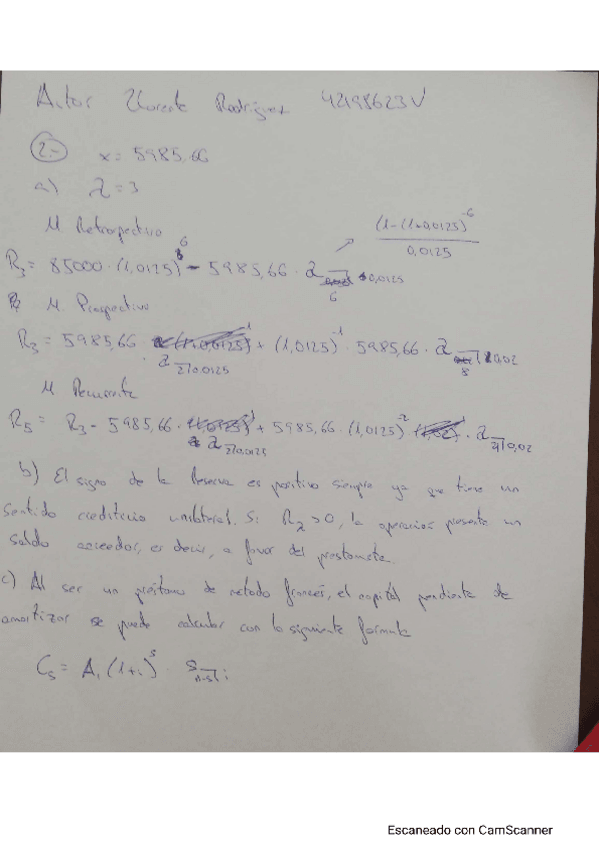 Aitor Llorente Rodríguez 42198623V
2.- x = 5985,66
a) λ = 3
M Retrospectivo
(1-(1+0,0125)^-6 / 0,0125
R3 = 85000 · (1,0125)^6 - 5985,66 · a 6 0,0125
M. Prospectivo
R3 = 5985,66 · a 2 0,0125 + (1,0125)^-1 · 5985,66 · a 8 0,02
M Recurrente
R5 = R3 - 5985,66 · a 2 0,0125 + 5985,66 · (1,0125)^-2 · a 0,02
b) El signo de la Reserva es positivo siempre ya que tiene un
sentido crediticio unilateral. Si Rλ > 0, la operación presenta un
saldo acreedor, es decir, a favor del prestamista.
c) Al ser un préstamo de método francés, el capital pendiente de
amortizar se puede calcular con la siguiente fórmula
Cs = A1 (1+i)^s S n-s i
Escaneado con CamScanner